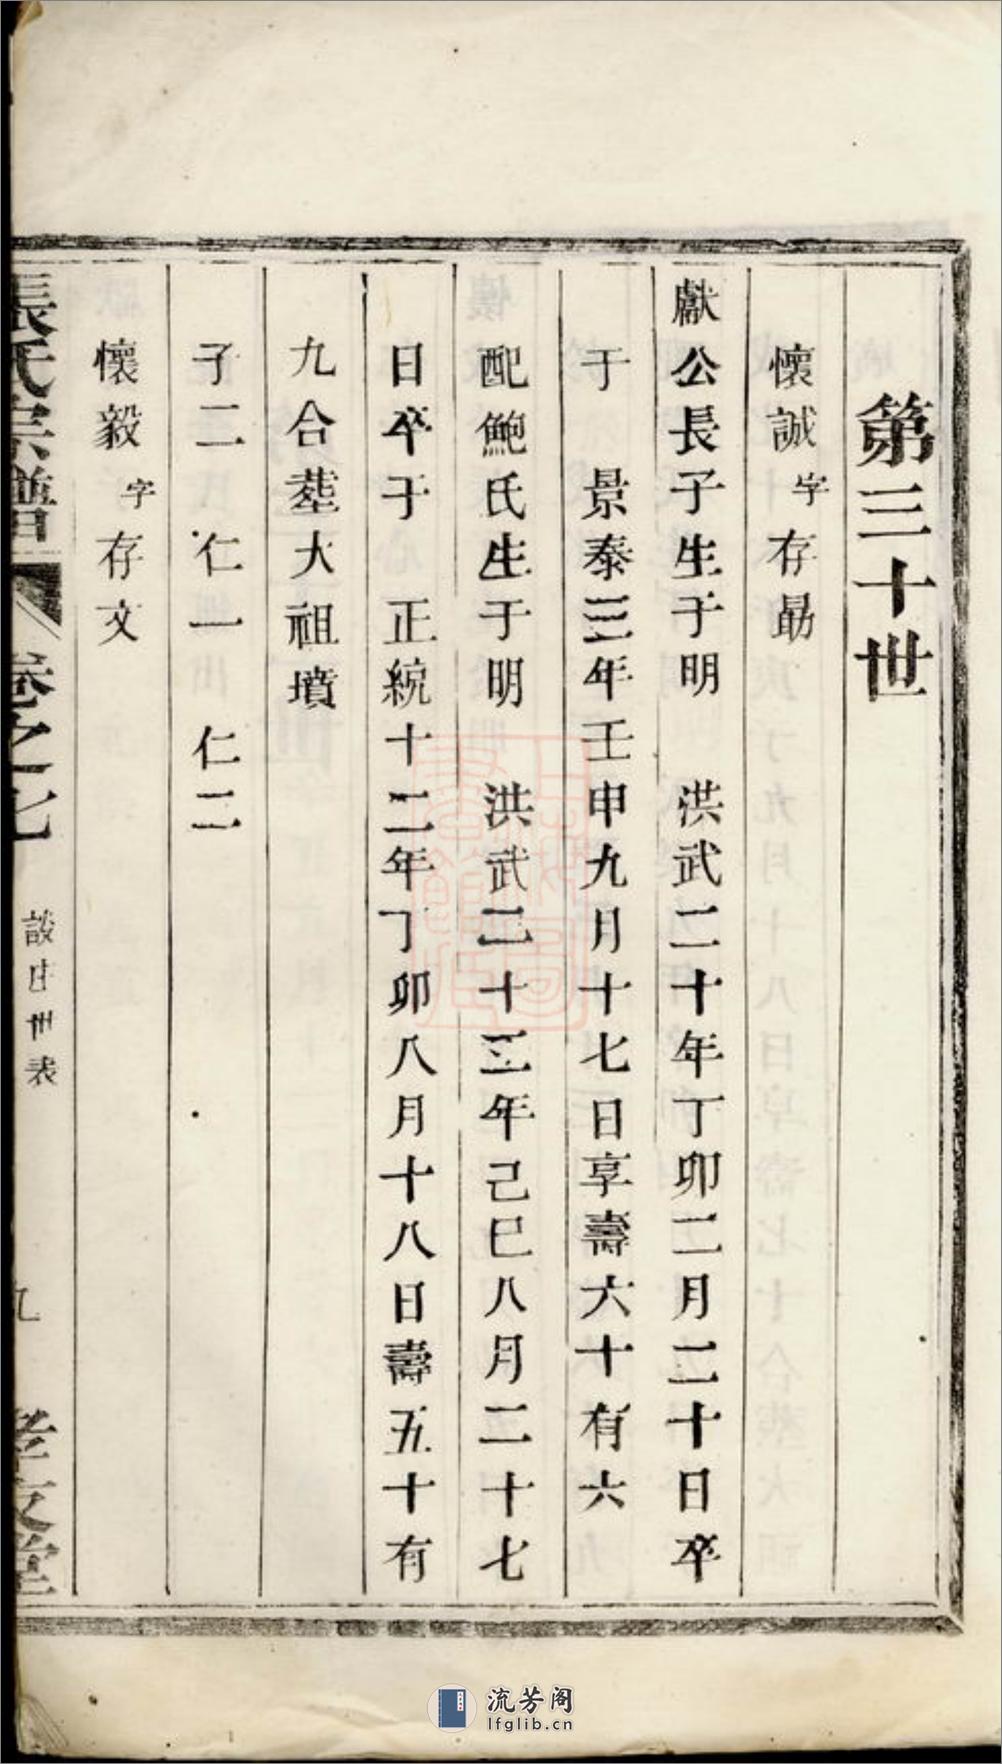 第三十世
懷誠 字 存勗
獻公長子生于明 洪武二十年丁卯二月二十日卒
于 景泰三年壬申九月十七日享壽六十有六
配鮑氏生于明 洪武二十三年己巳八月二十七
日卒于 正統十二年丁卯八月十八日壽五十有
九合塟大祖墳
子二 仁一 仁二
懷毅 字 存文
張氏宗譜 卷之七 談庄世表 九 孝友堂
流芳阁
lfglib.cn